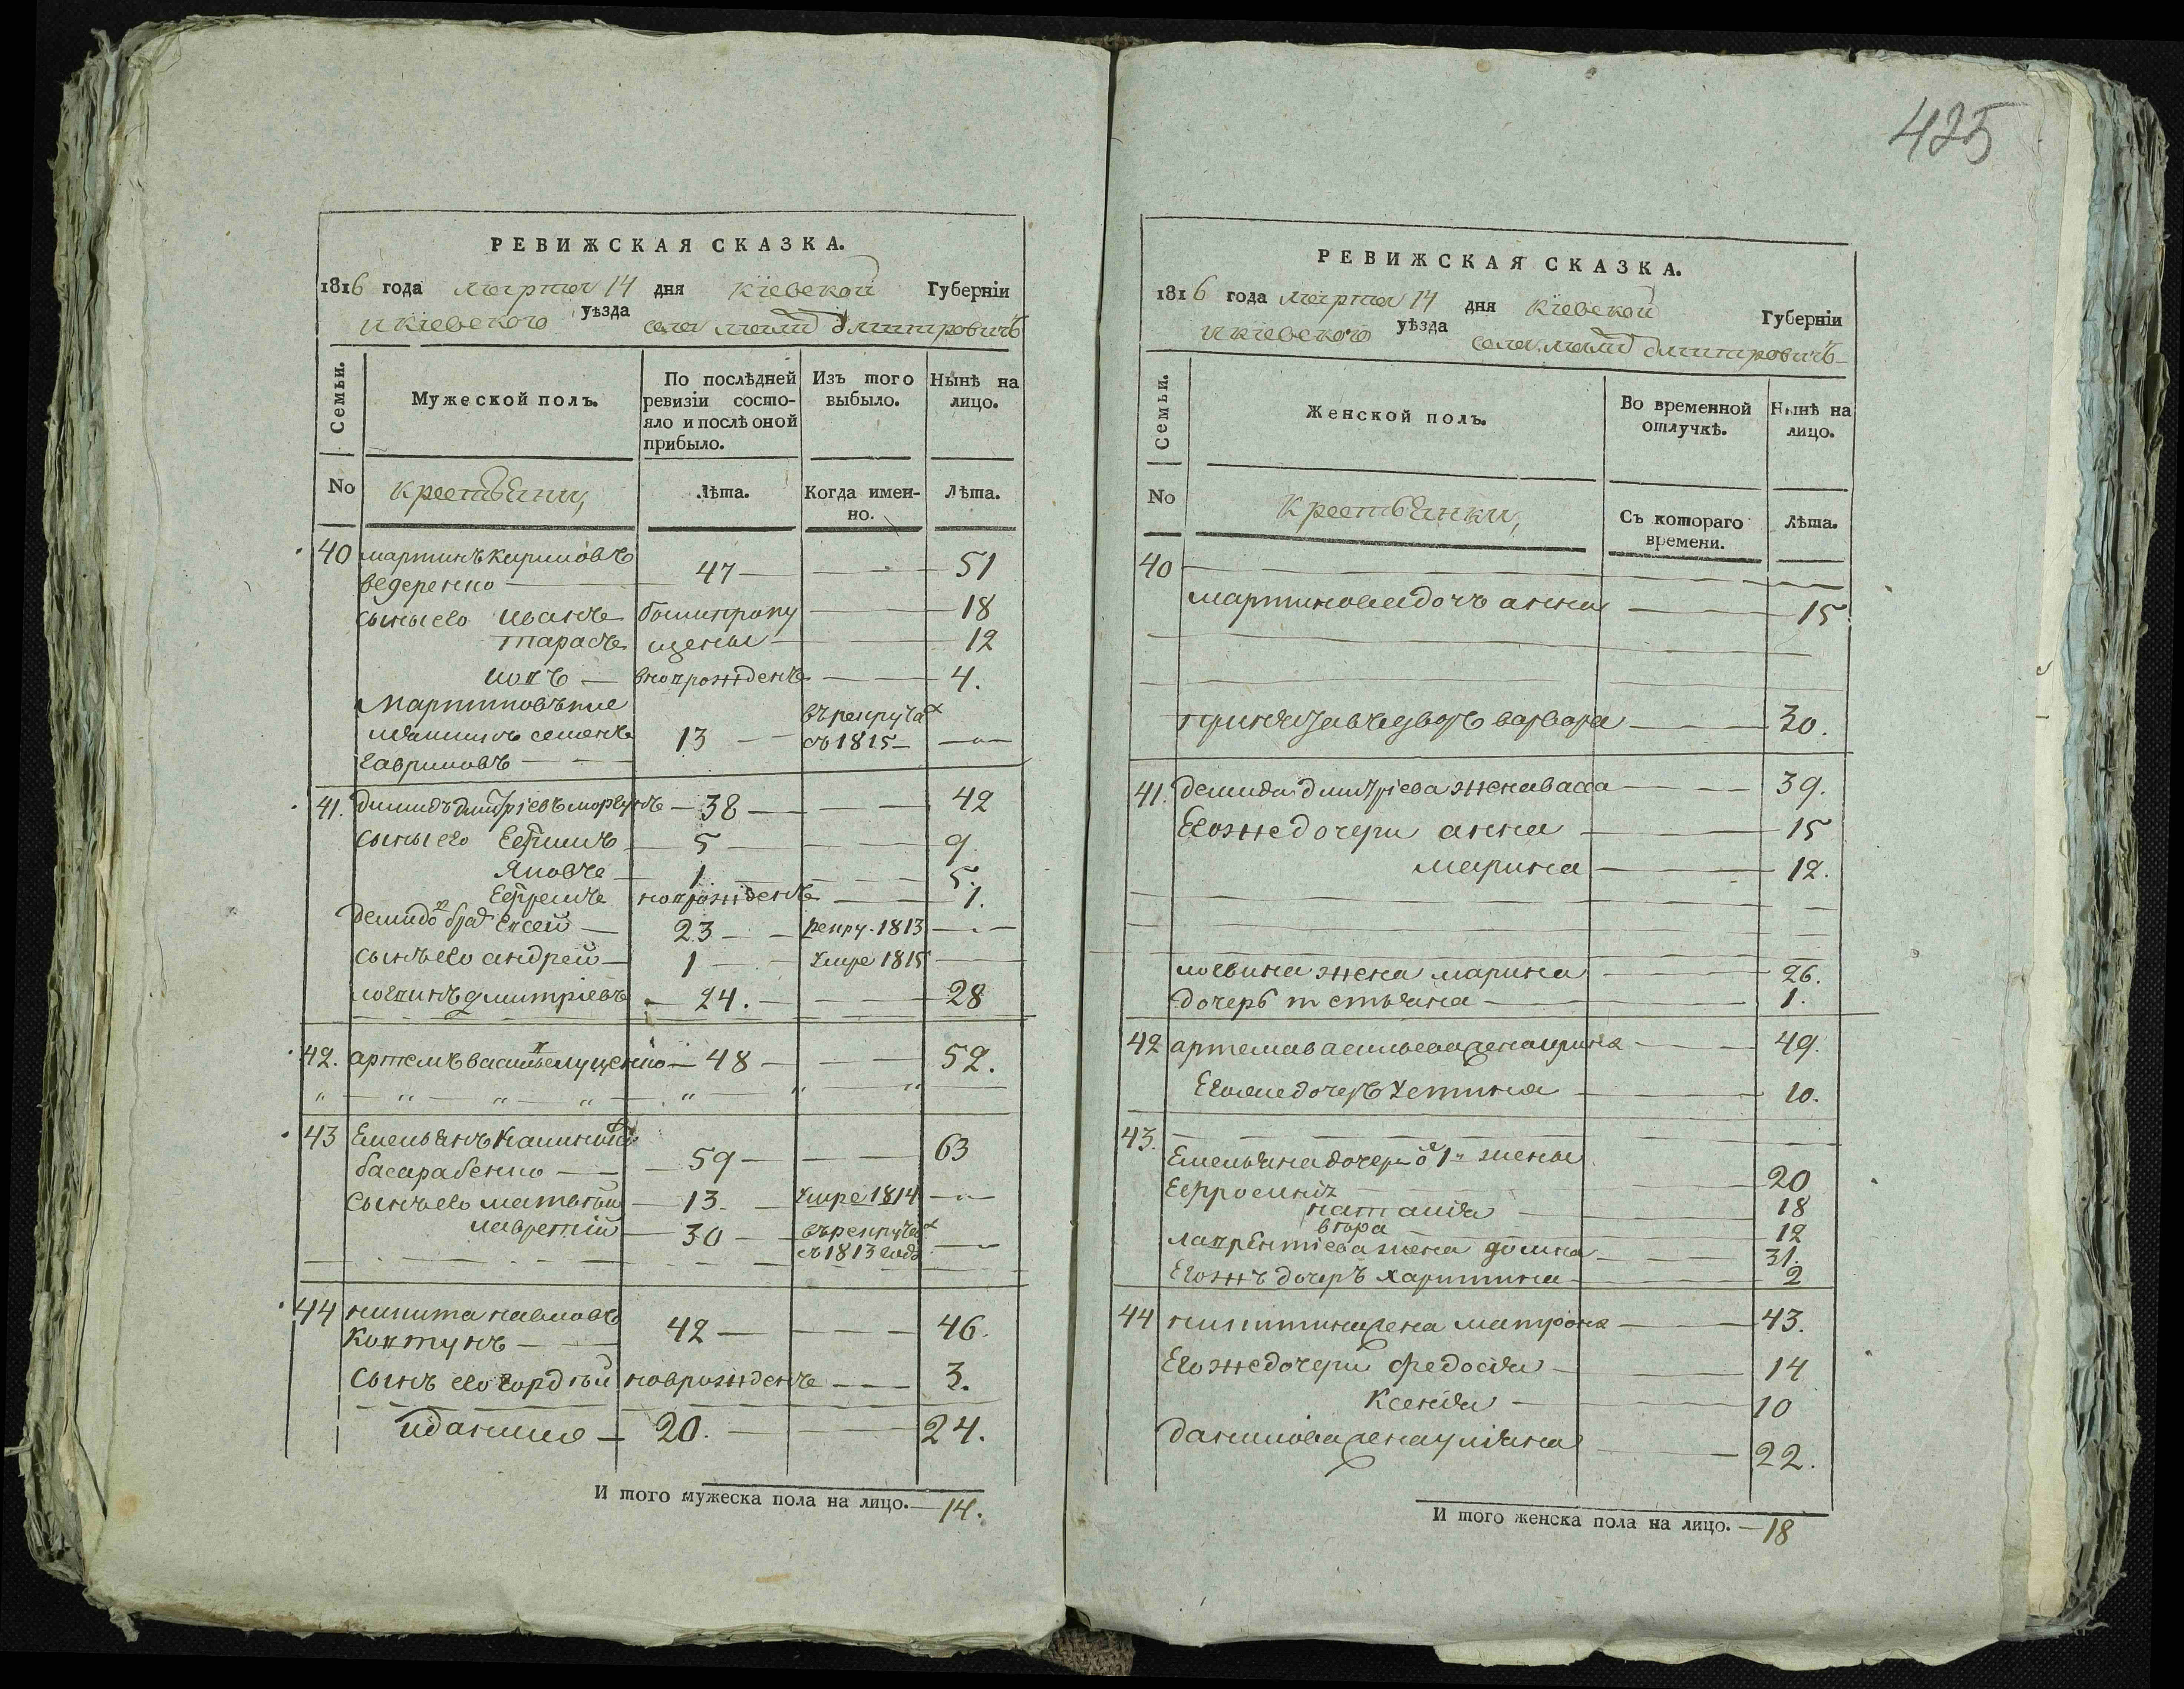 425
РЕВИЖСКАЯ СКАЗКА.
1816 года марта 14 дня Кіевской Губерніи
и кіевского уѣзда села малы дмитровичъ
Семьи. Мужеской полъ. По послѣдней ревизіи состояло и послѣ оной прибыло. Изъ того выбыло. Нынѣ на лицо.
No крестьяни, Лѣта. Когда именно. Лѣта.
40 мартинъ кириловъ
веденко — 47 — 51
сыны его иванъ бошипропу — 18
тарасъ щены — 12
— 4.
Мартиновъ пле
мянникъ семенъ 13 — въ рекрутах
гавриловъ — съ 1815 —
41. димидъ дмитріевъ моргунъ — 38 — 42
сыны его Ефимъ — 5 — 9
Яковъ — 1 — 5.
Ефремъ новорожденъ — 1.
демидов брат Евсей — 23 — рекру. 1813
сынъ его андрей — 1 — умре 1815
логвинъ дмитріевъ — 24. — 28
42. артемъ васильев луценко — 48 — 52.
43 Емельянъ Калинов
басарабенко — 59 — 63
сынъ его матвѣй — 13. — умре 1814
лаврентій — 30 — въ рекрутах
съ 1813 года
44 никита павловъ
Ковтунъ — 42 — 46.
сынъ его гордѣй новорожденъ — 3.
данило — 20. — 24.
И того мужеска пола на лицо. — 14.
РЕВИЖСКАЯ СКАЗКА.
1816 года марта 14 дня Кіевской Губерніи
и кіевского уѣзда села малы дмитровичъ
Семьи. Женской полъ. Во временной отлучкѣ. Нынѣ на лицо.
No Крестьянки, Съ котораго времени. Лѣта.
40
мартинова дочь анна — 15
варвара — 30.
41. демида дмитріева жена васса — 39.
Его же дочери анна — 15
марина — 12.
логвина жена марина — 26.
дочерь тетьяна — 1.
42 артема васильева жена ирина — 49.
Его же дочерь устина — 10.
43.
Емельяна дочери о 1й жены
Ефросинія — 20
наталія — 18
втора — 12
лаврентіева жена домна — 31.
Его жъ дочеръ харитина — 2
44 никитина жена матрона — 43.
Его же дочери федосія — 14
Ксенія — 10
данилова жена уліяна — 22.
И того женска пола на лицо. — 18